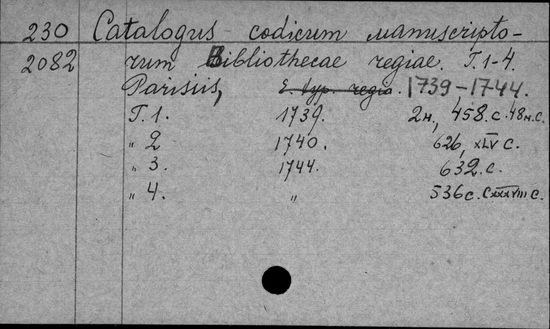 230 Catalogus codicum manuscripto-
2082 rum Bibliothecae regiae. T. 1-4.
Parisiis, E. typ. regia. 1739-1744.
T. 1. 1739. 2н., 458.с. 48н.с.
" 2 1740. 626, XLV с.
" 3. 1744. 632.с.
" 4. " 536с. CXXXVIII с.